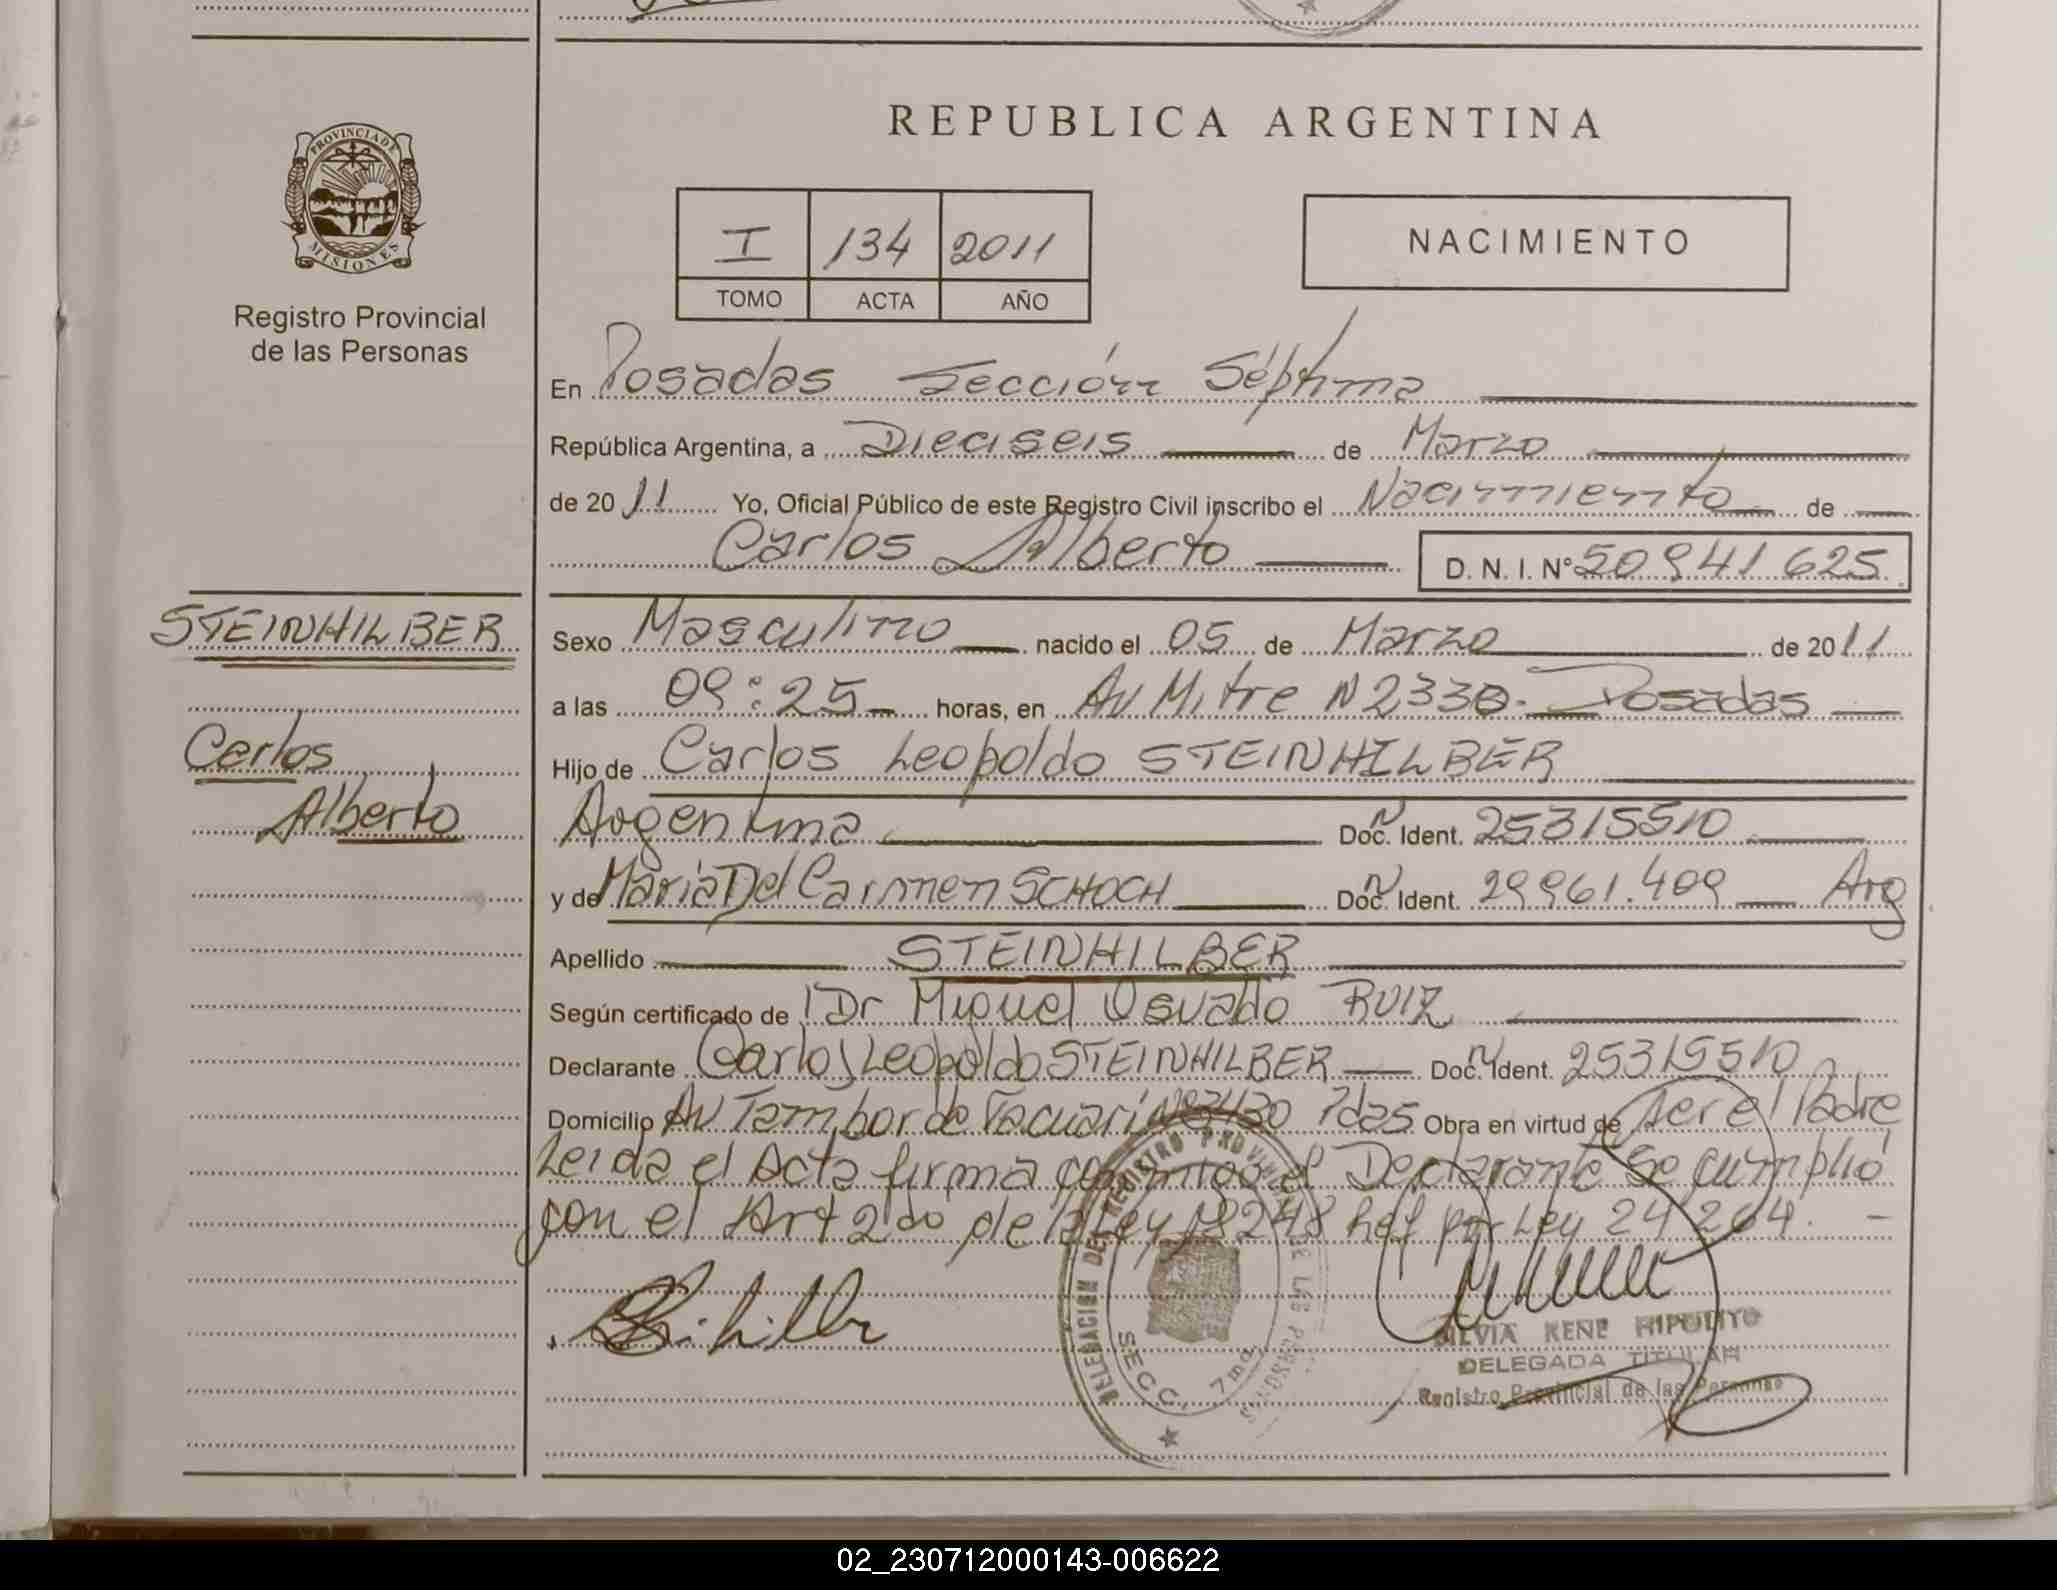 REPUBLICA ARGENTINA
PROVINCIA DE
MISIONES
Registro Provincial
de las Personas
I 134 2011
TOMO ACTA AÑO
NACIMIENTO
En Posadas Sección Séptima
República Argentina, a Dieciseis de Marzo
de 2011 Yo, Oficial Público de este Registro Civil inscribo el Nacimiento de
Carlos Alberto D. N. I. Nº 50941625
STEINHILBER
Carlos
Alberto
Sexo Masculino nacido el 05 de Marzo de 2011
a las 09:25 horas, en Av Mitre N 2330 - Posadas
Hijo de Carlos Leopoldo STEINHILBER
Argentina Doc. Ident. 25315510
y de Maria Del Carmen SCHOCH Doc. Ident. 29961.409 Arg
Apellido STEINHILBER
Según certificado de Dr Miguel Osvaldo RUIZ
Declarante Carlos Leopoldo STEINHILBER Doc. Ident. 25315510
Domicilio Av Tambor de Tacuari Pdas Obra en virtud de Ser el Padre
Leida el Acta firma conmigo el Declarante Se cumplió
con el Art 2do de la Ley 248 por Ley 24264. -
DELEGACION DEL REGISTRO PROVINCIAL DE LAS PERSONAS
SECC. 7ma
SILVIA RENE HIPOLITO
DELEGADA TITULAR
Registro Provincial de las Personas
02_230712000143-006622